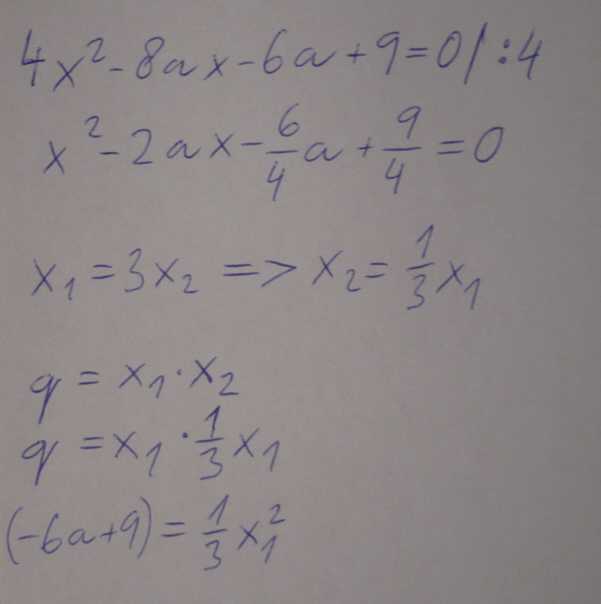 4x² - 8ax - 6a + 9 = 0 / :4
x² - 2ax - 6/4 a + 9/4 = 0
x₁ = 3x₂ => x₂ = 1/3 x₁
q = x₁ · x₂
q = x₁ · 1/3 x₁
(-6a+9) = 1/3 x₁²